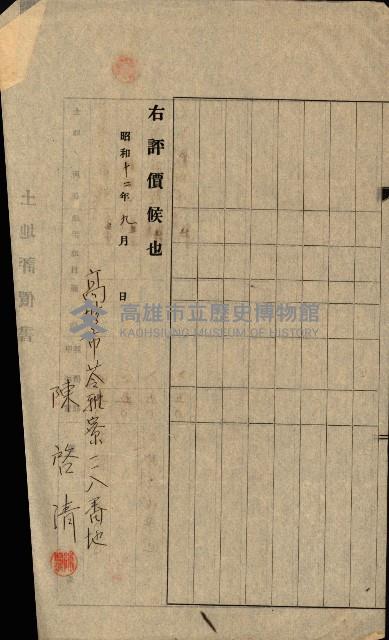 右評價候也
昭和十二年九月 日
高雄市苓雅寮一一八番地
陳啓清
土地評價書
高雄市立歷史博物館
KAOHSIUNG MUSEUM OF HISTORY